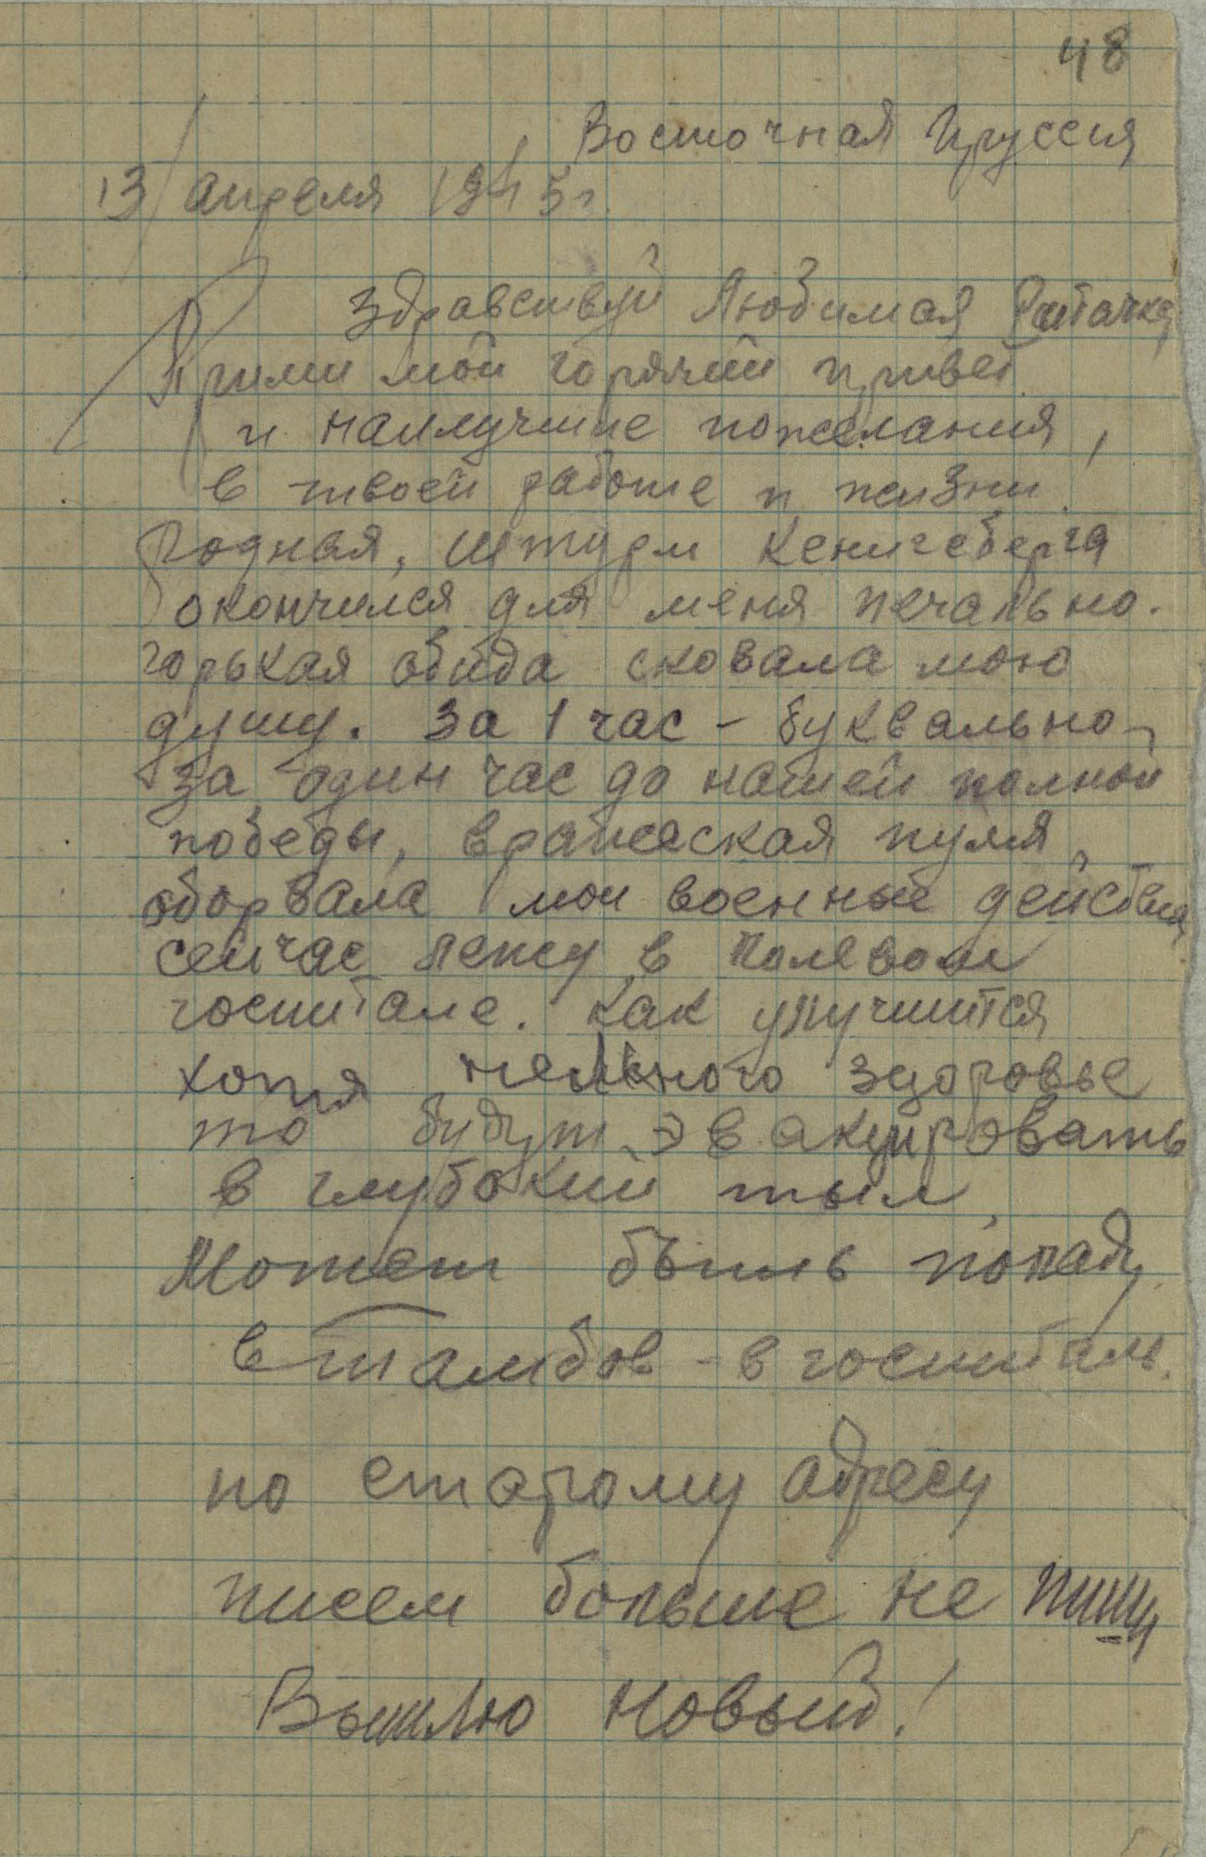 48
Восточная Пруссия
13 апреля 1945 г.
Здравствуй Любимая Раитачка,
Прими мой горячий привет
и наилучшие пожелания,
в твоей работе и жизни.
Родная, штурм Кенигсберга
окончился для меня печально.
горькая обида сковала мою
душу. За 1 час - буквально
за один час до нашей полной
победы, вражеская пуля
оборвала мои военные действия,
сейчас лежу в полевом
госпитале. Как улучшится
хотя немного здоровье
то будут эвакуировать
в глубокий тыл,
Может быть попаду
в Тамбов - в госпиталь.
по старому адресу
писем больше не пиши
Вышлю новый!